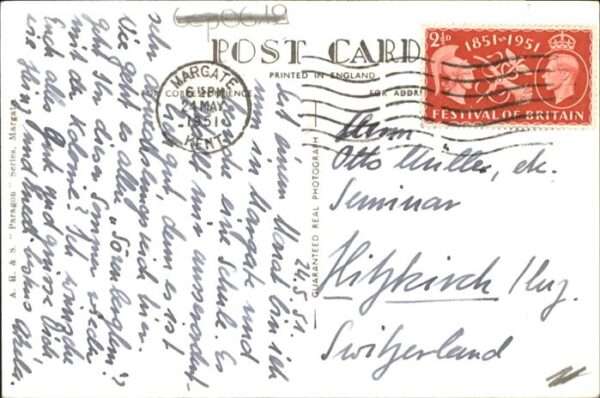 POST CARD
PRINTED IN ENGLAND
FOR CORRESPONDENCE
FOR ADDRESS
MARGATE
6 PM
24 MAY
1951
KENT
2½D
1851-1951
FESTIVAL OF BRITAIN
24.5.51.
Seit einem Monat bin ich
nun in Margate und
eine Schule. Es
gefällt mir ausserordent-
lich gut, denn es ist
sehr abwechslungsreich hier.
Wie geht es allen
geht Ihr diesen Sommer wieder
mit der Kolonie? Ich wünsche
Euch alles Gute und grüsse Dich
GUARANTEED REAL PHOTOGRAPH
A. H. & S. "Paragon" Series, Margate
Herrn
Otto Müller, ek.
Seminar
Hitzkirch / Luz.
Switzerland